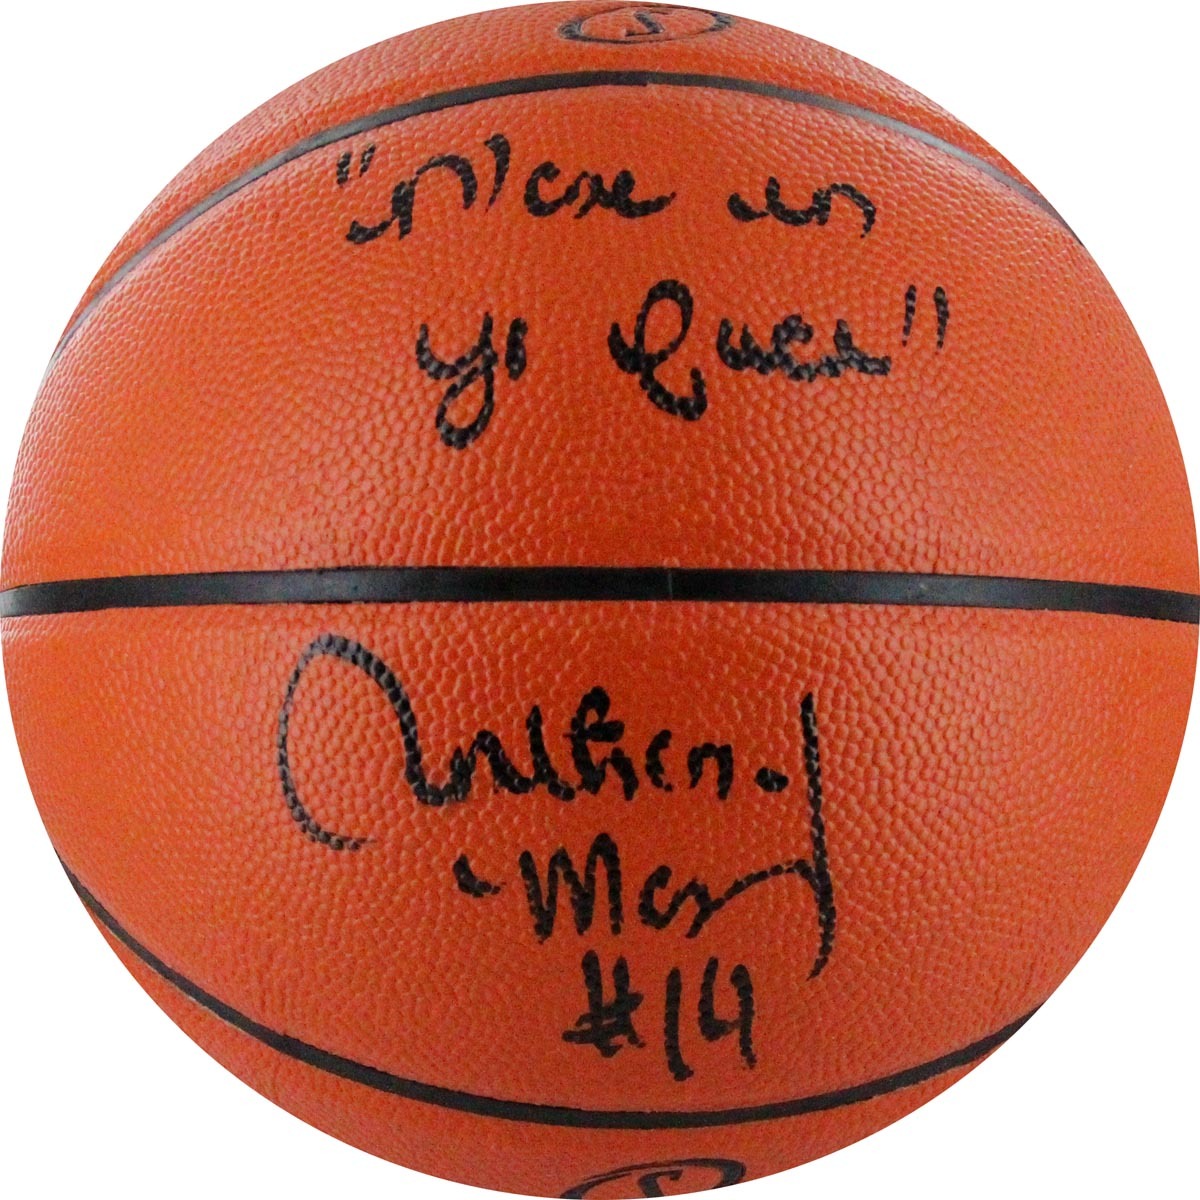 "Mase in
yo face"
Anthony
Mason
#14